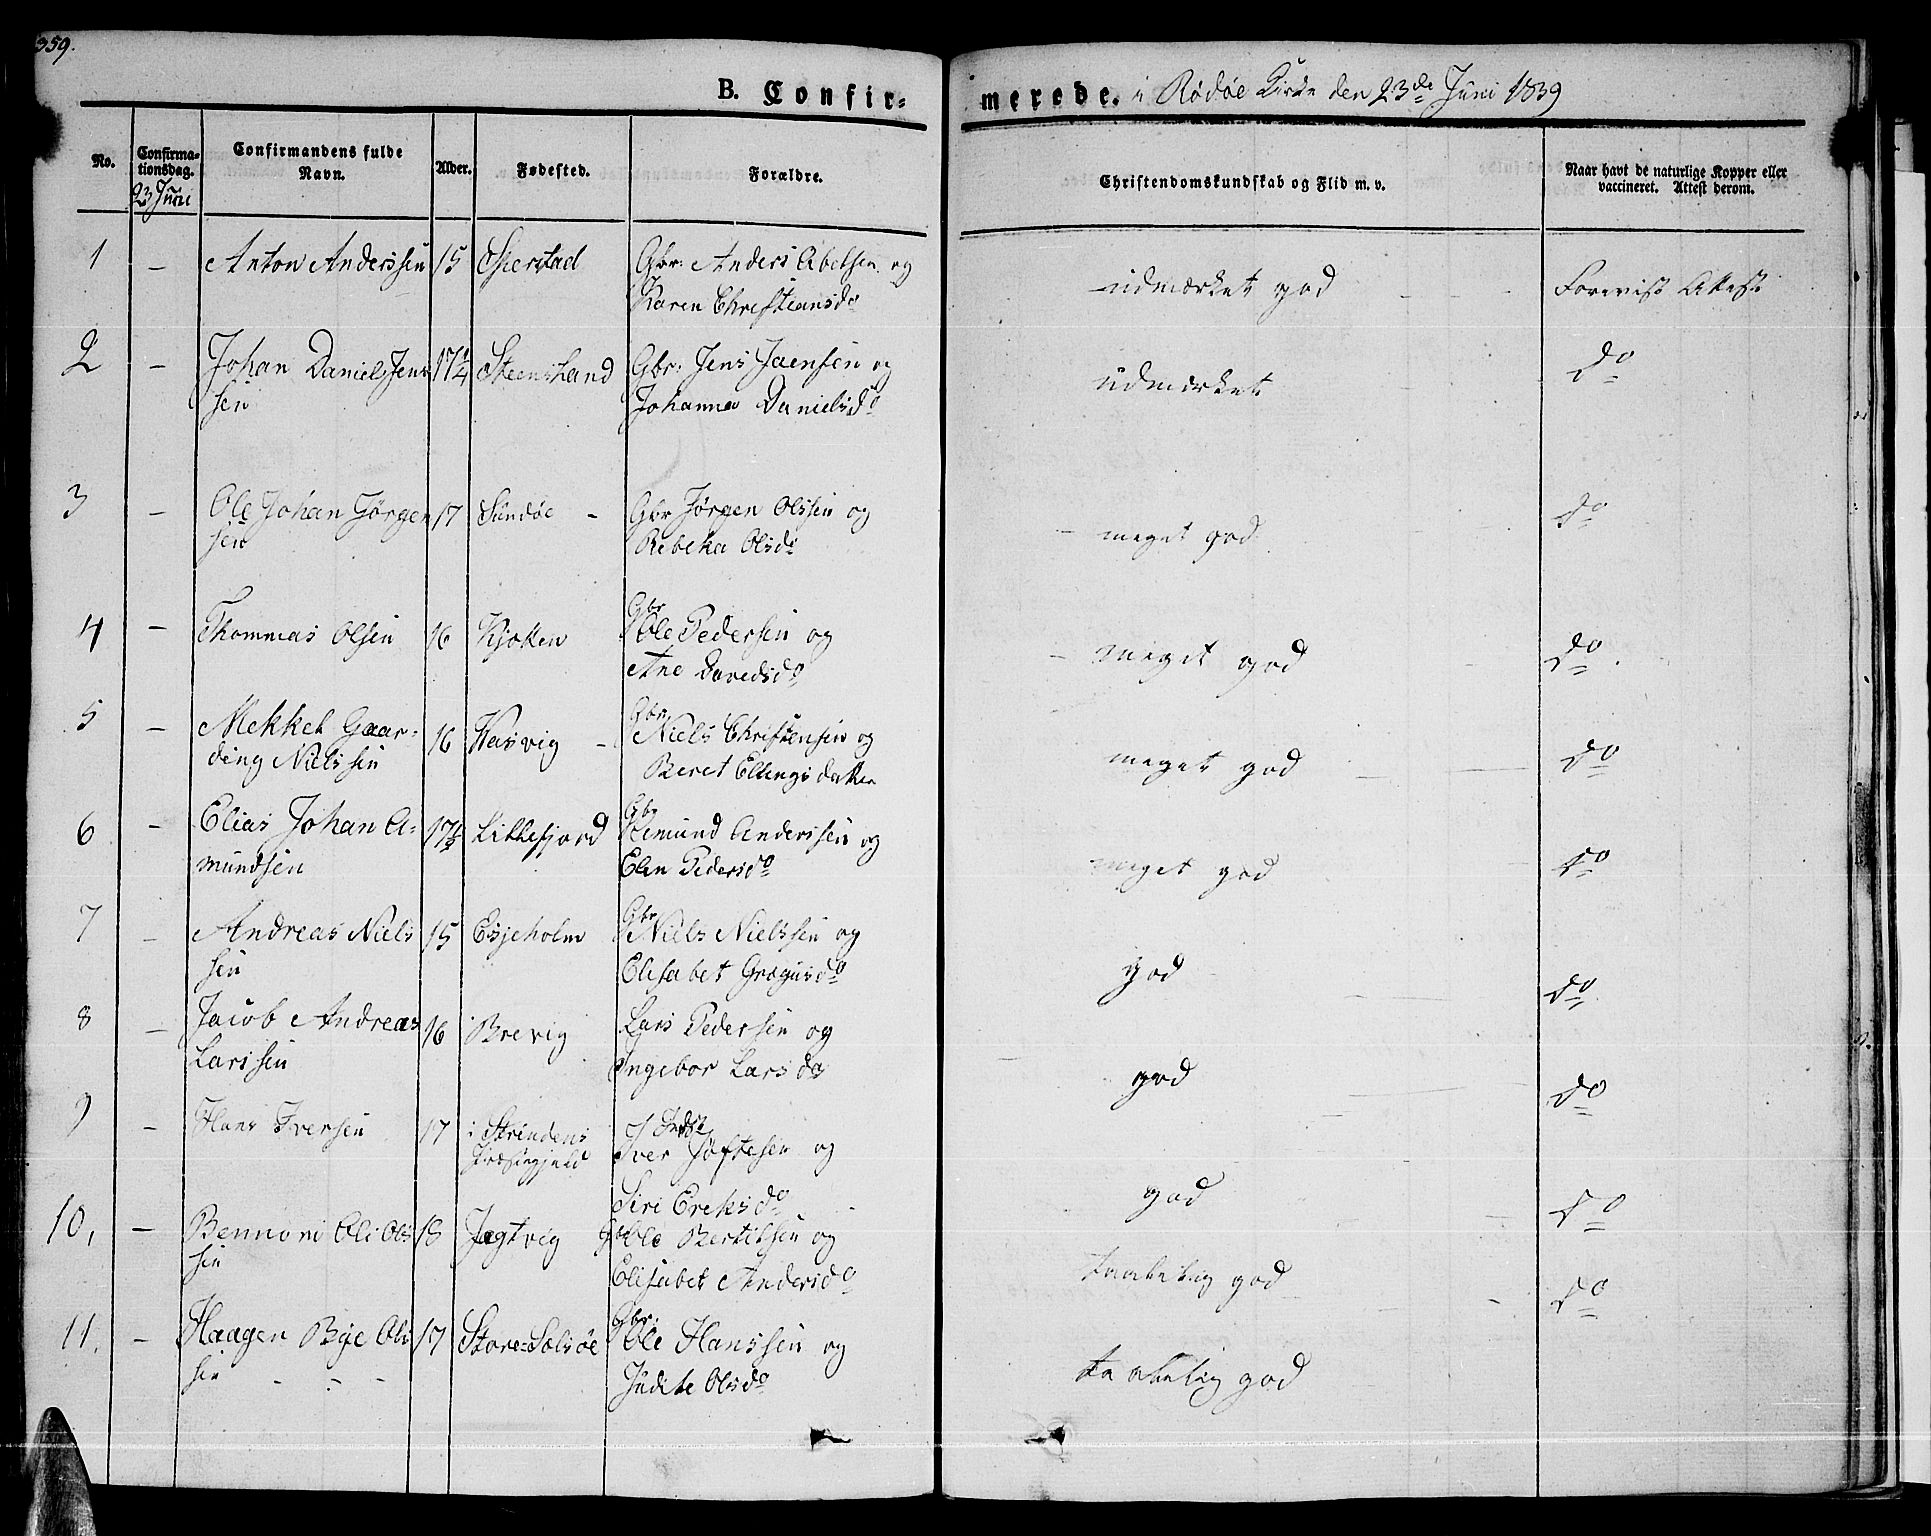 359.
B. Confir-
merede. i Rødøe Kirke den 23de Juni 1839
No.
Confirma-
tionsdag.
23 Juni
Confirmandens fulde
Navn.
Alder.
Fødested.
Forældre.
Christendomskundskab og Flid m. v.
Naar havt de naturlige Kopper eller
vaccineret. Attest derom.
1 — Anton Anderssen 15 Gbr: Anders Abelsen og
Karen Christiansdr
udmærket god
Forevist Attest
2 — Johan Daniel Jens 17¼ Steensland Gbr: Jens Jaensen og
sen Johanna Danielsdr
udmærket
do
3 — Ole Johan Jörgen 17 Sundöe - Gbr Jörgen Olssen og
sen Rebeka Olsdr
meget god
do
4 — Thommas Olsen 16 Kjokken Gbr Ole Pedersen og
Ane Davedsdr
meget god
do
5 — Mekkel Gaar- 16 Hasvig - Gbr Niels Christensen og
ding Nielssen Beret Ellingsdatter
meget god
do
6 — Elias Johan A- 17½ Lillefjord Gbr Amund Anderssen og
mundsen Elen Pedersdr
meget god
do
7 — Andreas Niels 15 Esjeholm Gbr Niels Nielssen og
sen Elisabet Gregusdr
god
do
8 — Jacob Andreas 16 Brevig Lars Pedersen og
Larssen Ingebor Larsdr
god
do
9 — Hans Iversen 17 i Strindens
Præstegjeld
Iver Jöftesen og
Siri Ereksdr
god
do
10, — Bennoni Oli Ols 18 Jegtvig Gbr Ole Bertelsen og
sen Elisabet Andersdr
taalelig god
do
11. — Haagen Bye Ols 17 Store-Selsöe Gbr: Ole Hanssen og
sen Judite Olsdr
taalelig god